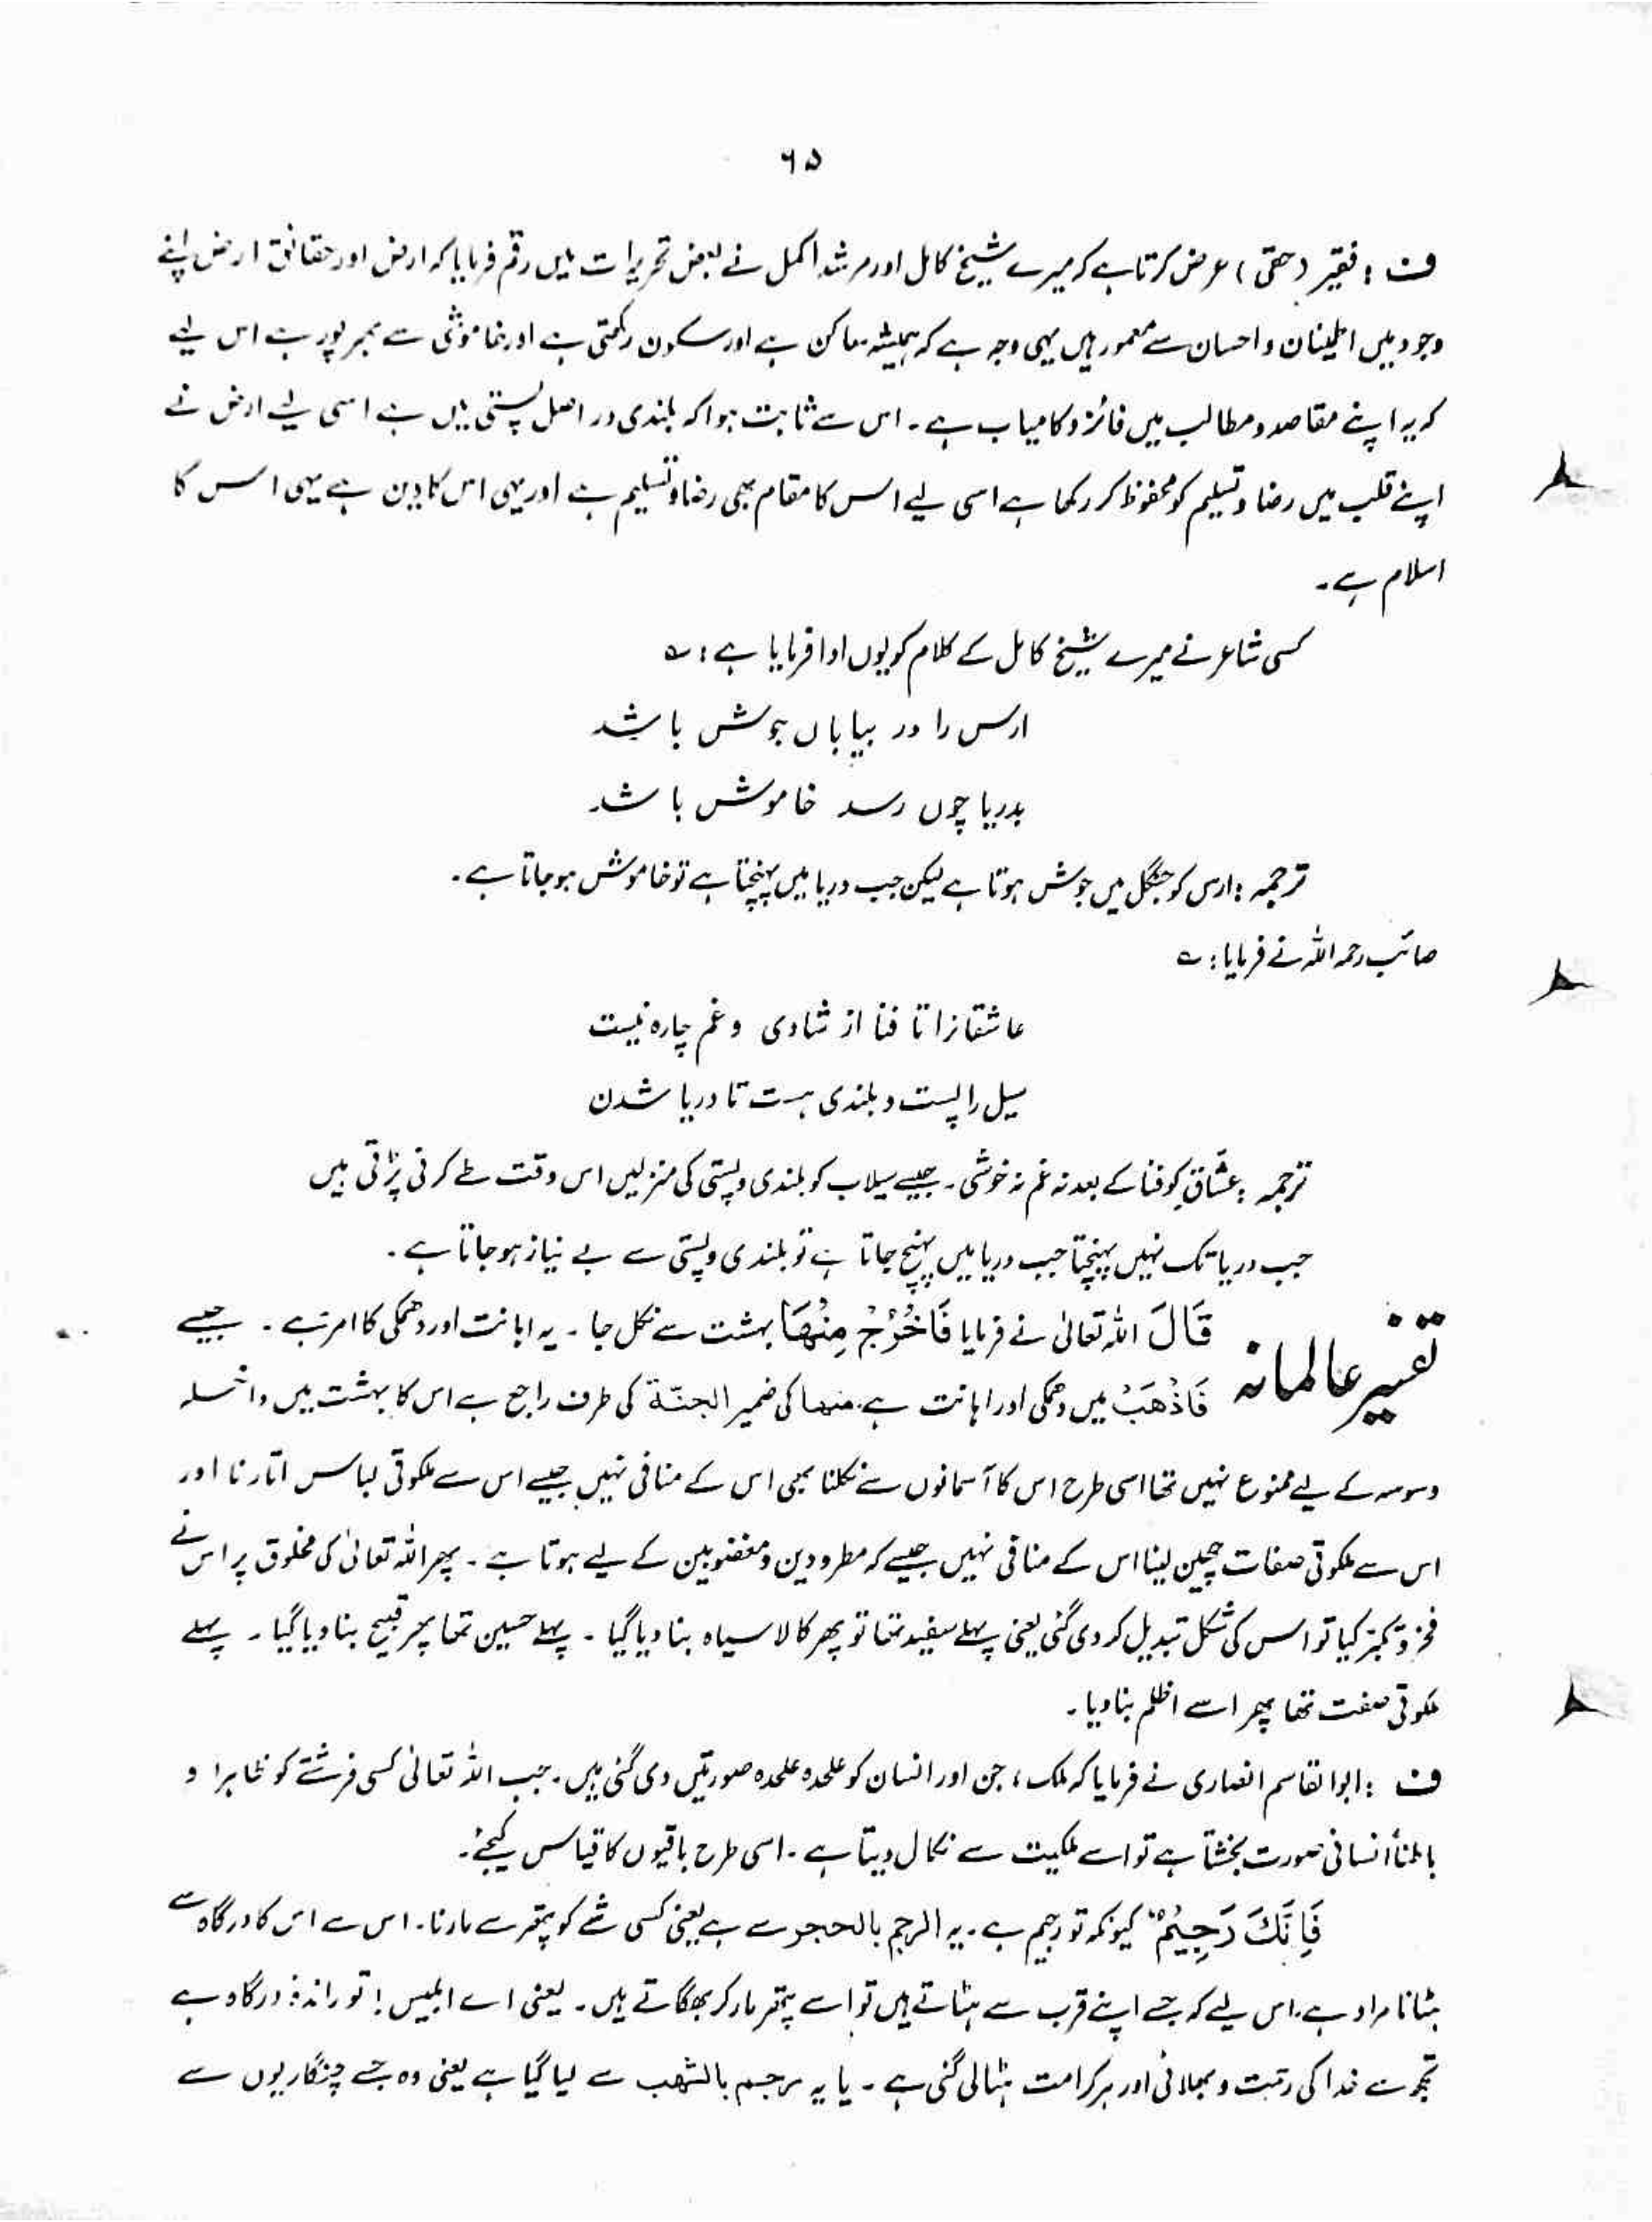 ۶۵
ف : فقیر (حقی) عرض کرتا ہے کہ میرے شیخ کامل اور مرشد اکمل نے بعض تحریرات میں رقم فرمایا کہ ارض اور حقائق ارض اپنے
وجود میں اطمینان و احسان سے معمور ہیں یہی وجہ ہے کہ ہمیشہ ساکن ہے اور سکون رکھتی ہے اور خاموشی سے بھرپور ہے اس لیے
کہ یہ اپنے مقاصد و مطالب میں فائز و کامیاب ہے۔ اس سے ثابت ہوا کہ بلندی در اصل پستی میں ہے اسی لیے ارض نے
اپنے قلب میں رضا و تسلیم کو محفوظ کر رکھا ہے اسی لیے اس کا مقام بھی رضا و تسلیم ہے اور یہی اس کا دین ہے یہی اس کا
اسلام ہے۔
کسی شاعر نے میرے شیخ کامل کے کلام کو یوں ادا فرمایا ہے : ے
ارس را در بیاباں جوش باشد
بدریا چوں رسد خاموش باشد
ترجمہ : ارس کو جنگل میں جوش ہوتا ہے لیکن جب دریا میں پہنچتا ہے تو خاموش ہوجاتا ہے۔
صائب رحمہ اللہ نے فرمایا : ے
عاشقانرا تا فنا از شادی و غم چارہ نیست
سیل را پست و بلندی ہست تا دریا شدن
ترجمہ : عشّاق کو فنا کے بعد نہ غم نہ خوشی۔ جیسے سیلاب کو بلندی و پستی کی منزلیں اس وقت طے کرنی پڑتی ہیں
جب دریا تک نہیں پہنچتا جب دریا میں پہنچ جاتا ہے تو بلندی و پستی سے بے نیاز ہوجاتا ہے۔
تفسیر عالمانہ قَالَ اللہ تعالیٰ نے فرمایا فَاخْرُجْ مِنْهَا بہشت سے نکل جا۔ یہ اہانت اور دھمکی کا امر ہے۔ جیسے
فَاذْهَبْ میں دھمکی اور اہانت ہے۔ منها کی ضمیر الجنّة کی طرف راجع ہے اس کا بہشت میں داخلہ
وسوسہ کے لیے ممنوع نہیں تھا اسی طرح اس کا آسمانوں سے نکلنا بھی اس کے منافی نہیں جیسے اس سے ملکوتی لباس اتارنا اور
اس سے ملکوتی صفات چھین لینا اس کے منافی نہیں جیسے کہ مطرودین و مغضوبین کے لیے ہوتا ہے۔ پھر اللہ تعالیٰ کی مخلوق پر اس نے
فخر و تکبر کیا تو اس کی شکل تبدیل کر دی گئی یعنی پہلے سفید تھا تو پھر کالا سیاہ بنا دیا گیا۔ پہلے حسین تھا پھر قبیح بنا دیا گیا۔ پہلے
ملکوتی صفت تھا پھر اسے اظلم بنادیا۔
ف : ابوالقاسم انصاری نے فرمایا کہ ملک، جن اور انسان کو علیحدہ علیحدہ صورتیں دی گئی ہیں۔ جب اللہ تعالیٰ کسی فرشتے کو ظاہرا و
باطناً انسانی صورت بخشتا ہے تو اسے ملکیت سے نکال دیتا ہے۔ اسی طرح باقیوں کا قیاس کیجئے۔
فَاِنَّكَ رَجِيْمٌ کیونکہ تو رجیم ہے۔ یہ الرجم بالحجر سے ہے یعنی کسی شے کو پتھر سے مارنا۔ اس سے اس کا درگاہ سے
ہٹانا مراد ہے۔ اس لیے کہ جسے اپنے قرب سے ہٹاتے ہیں تو اسے پتھر مار کر بھگاتے ہیں۔ یعنی اے ابلیس! تو راندۂ درگاہ ہے
تجھ سے خدا کی رحمت و بھلائی اور ہر کرامت ہٹالی گئی ہے۔ یا یہ رجم بالشهب سے لیا گیا ہے یعنی وہ جسے چنگاریوں سے